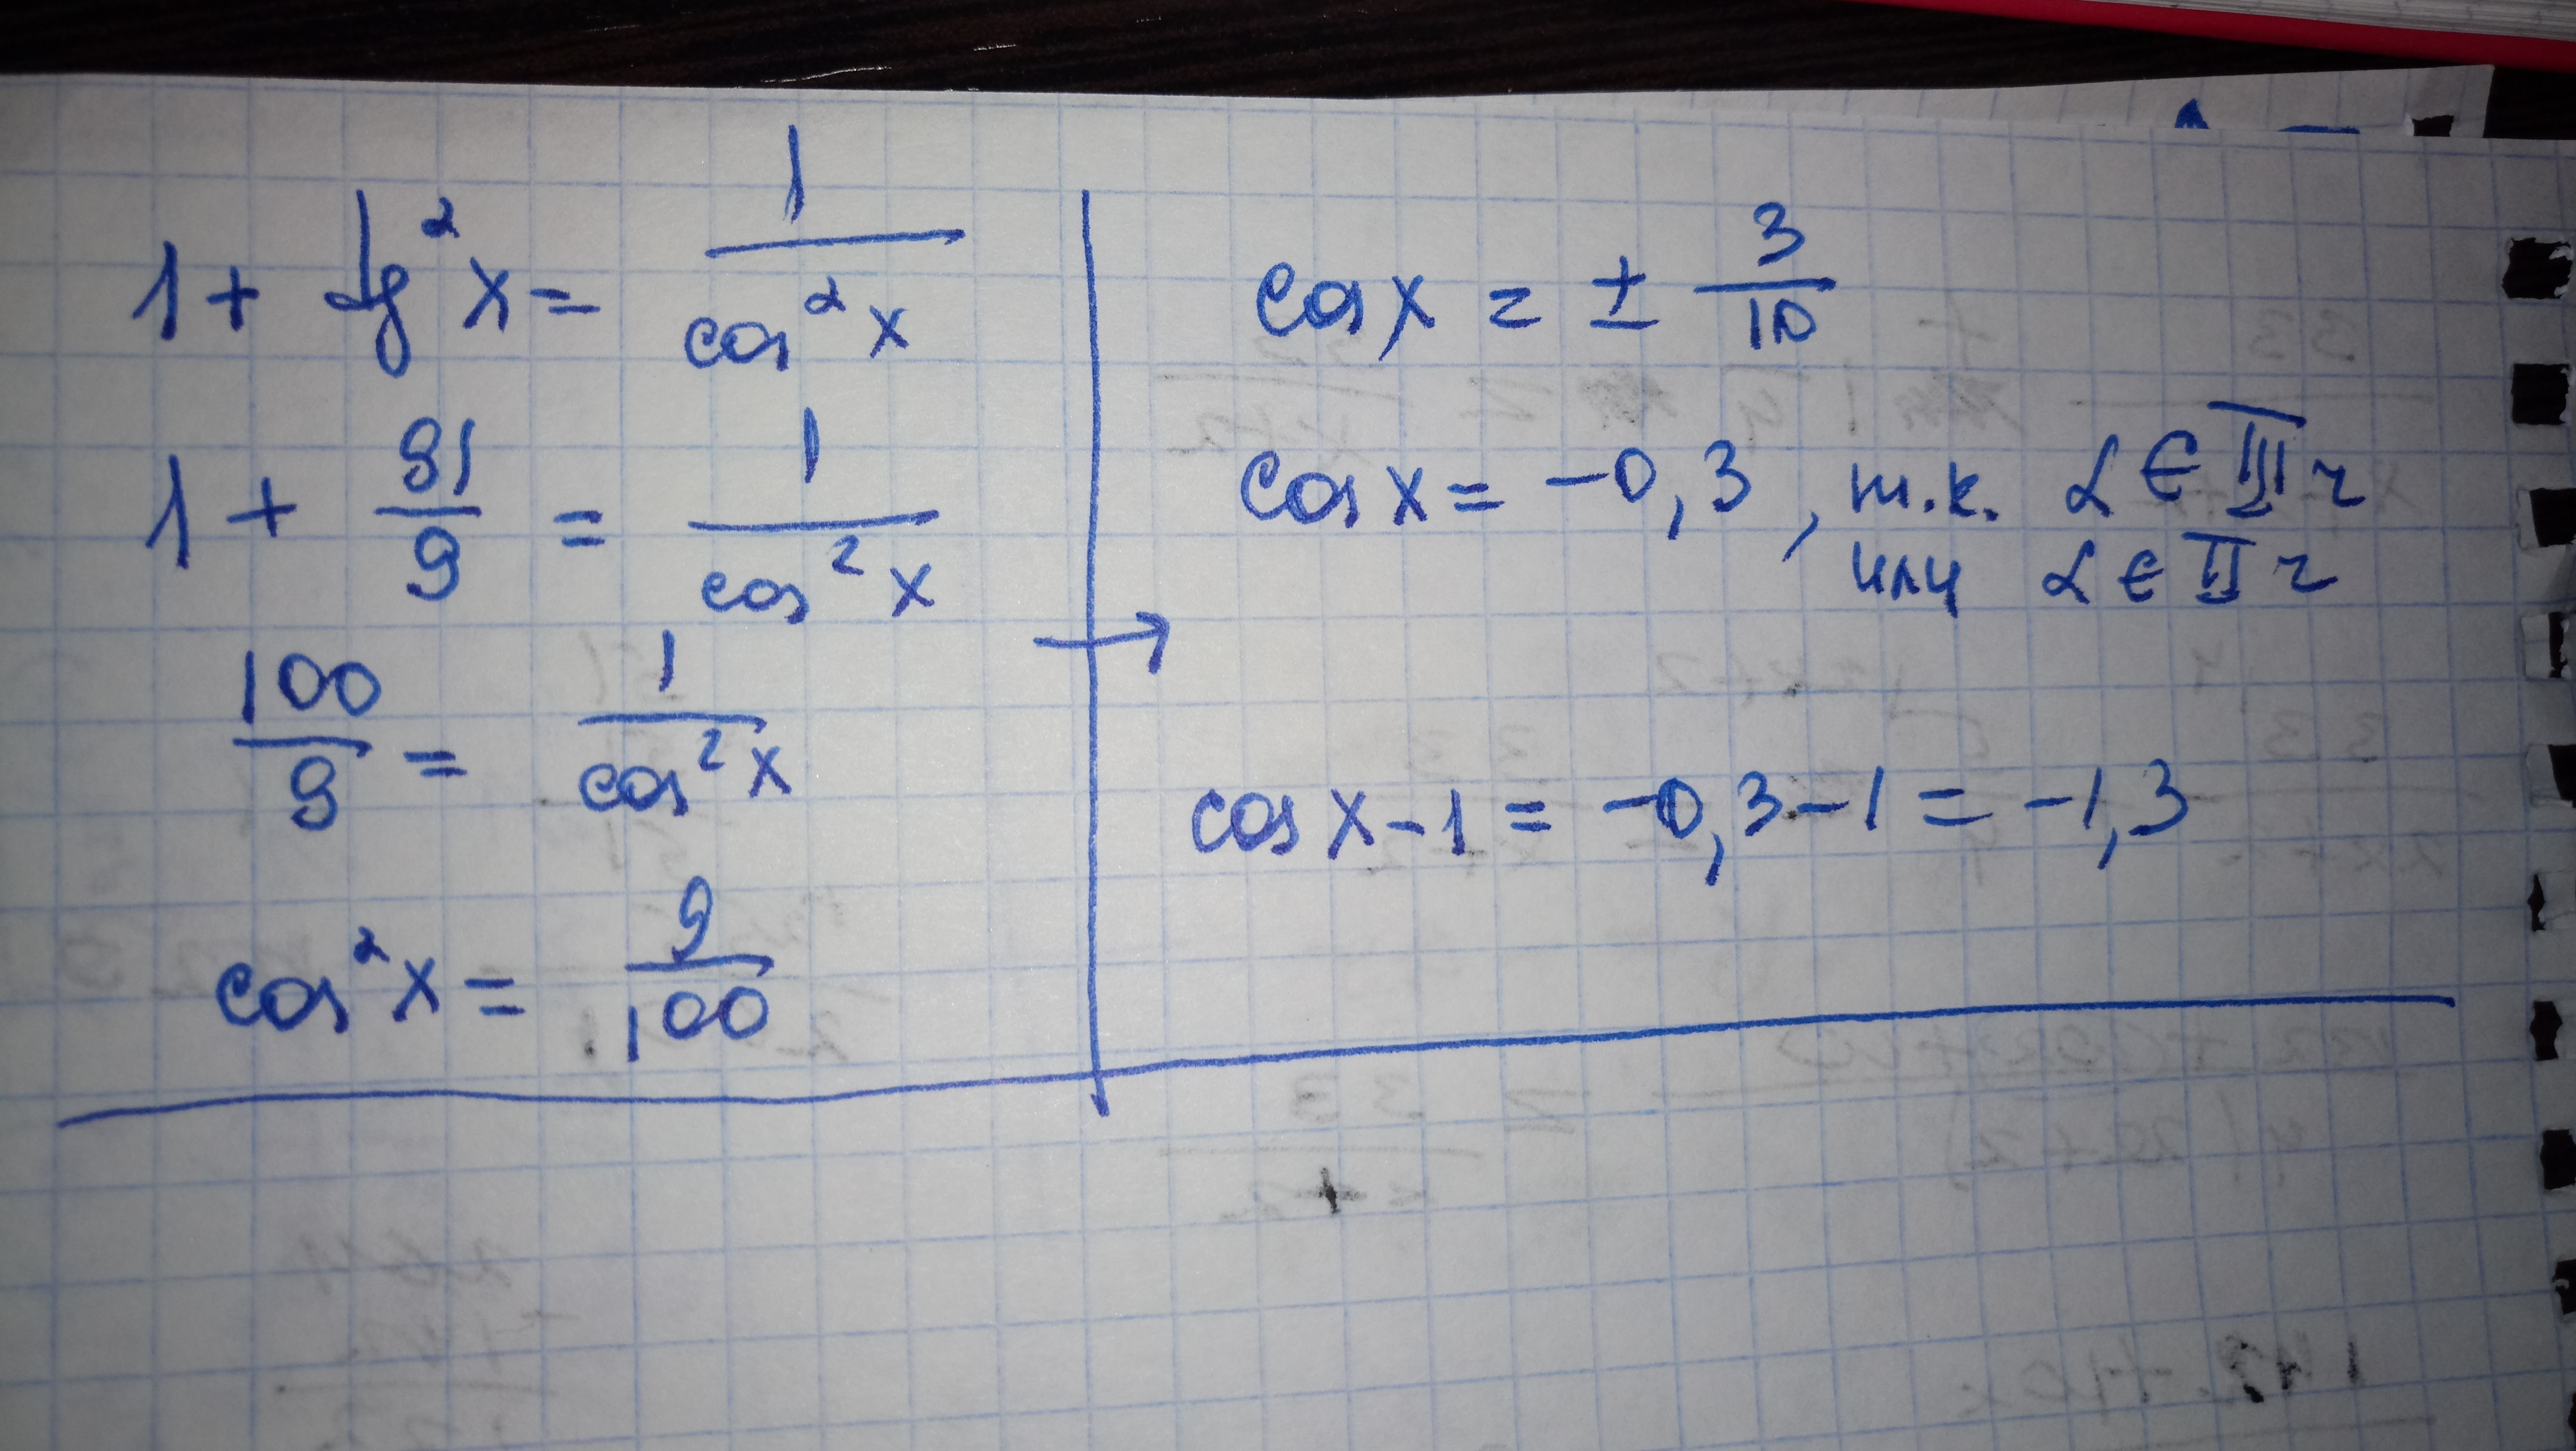 1 + tg²x = 1/cos²x
1 + 91/9 = 1/cos²x
100/9 = 1/cos²x
cos²x = 9/100
cos x = ± 3/10
cos x = -0,3, т.к. α ∈ III ч
или α ∈ II ч
cos x - 1 = -0,3 - 1 = -1,3